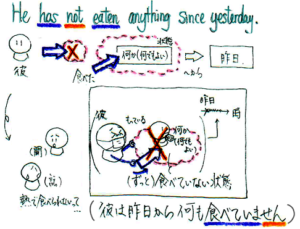 He has not eaten anything since yesterday.
状態
何か(何でもよい)
昨日
彼
食べた
〜から
昨日
彼
もっている
何か
(何でもよい)
(ずっと)食べていない状態
(彼は昨日から何も食べていません)